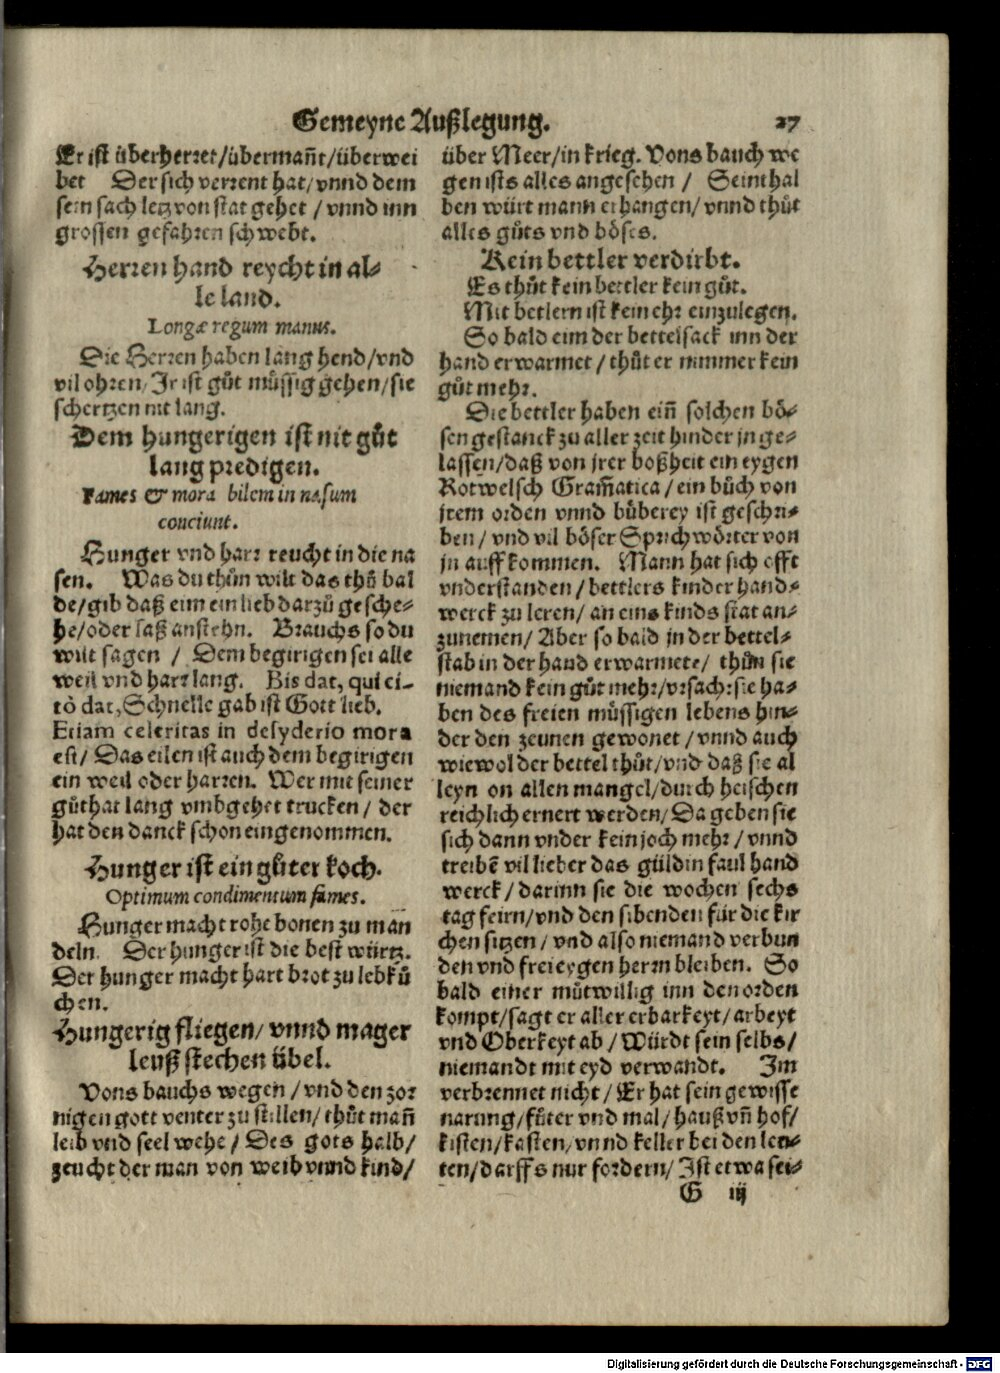 Gemeyne Außlegung. 27
Er ist überherret/übermañt/überwei
bet Der sich verrent hat/vnnd dem
sein sach letz von stat gehet/vnnd inn
grossen gefahren schwebt.
Herren hand reycht in al-
le land.
Longæ regum manus.
Die Herren haben lang hend/vnd
vil ohren/Jr ist gůt müssig gehen/sie
schertzen nit lang.
Dem hungerigen ist nit gůt
lang predigen.
Fames & mora bilem in nasum
conciunt.
Hunger vnd harr reucht in die na
sen. Was du thůn wilt das thů bal
de/gib daß eim ein lieb darzů gesche-
he/oder laß anstehn. Brauchs so du
wilt sagen / Dem begirigen sei alle
weil vnd harr lang. Bis dat, qui ci-
tò dat, Schnelle gab ist Gott lieb.
Etiam celeritas in desyderio mora
est/ Das eilen ist auch dem begirigen
ein weil oder harren. Wer mit seiner
gůthat lang vmbgehet trucken / der
hat den danck schon eingenommen.
Hunger ist ein gůter koch.
Optimum condimentum fames.
Hunger macht rohe bonen zu man
deln. Der hunger ist die best würtz.
Der hunger macht hart brot zu lebků
chen.
Hungerig fliegen/ vnnd mager
leuß stechen übel.
Vons bauchs wegen / vnd den zor
nigen gott venter zu stillen/ thůt mañ
leib vnd seel wehe / Des gots halb/
zeucht der man von weib vnnd kind/
über Meer/in krieg. Vons bauch we
gen ists alles angesehen / Seinthal
ben würt mann erhangen/ vnnd thůt
alles gůts vnd böses.
Kein bettler verdirbt.
Es thůt kein bettler kein gůt.
Mit betlern ist kein ehr einzulegen.
So bald eim der bettelsack inn der
hand erwarmet / thůt er nimmer kein
gůt mehr.
Die bettler haben eiñ solchen bö-
sen gestanck zu aller zeit hinder jn ge-
lassen/daß von jrer boßheit ein eygen
Rotwelsch Gram̃atica / ein bůch von
jrem orden vnnd bůberey ist geschri-
ben / vnd vil böser Sprichwörter von
jn auff kommen. Mann hat sich offt
vnderstanden / bettlers kinder hand-
werck zu leren/ an eins kinds stat an-
zunemen/ Aber so bald jn der bettel-
stab in der hand erwarmete/ thůn sie
niemand kein gůt mehr/vrsach:sie ha-
ben des freien müssigen lebens hin-
der den zeunen gewonet / vnnd auch
wiewol der bettel thůt/vnd daß sie al
leyn on allen mangel/durch heischen
reichlich ernert werden/ Da geben sie
sich dann vnder kein joch mehr / vnnd
treibẽ vil lieber das güldin faul hand
werck / darinn sie die wochen sechs
tag feirn/vnd den sibenden für die kir
chen sitzen / vnd also niemand verbun
den vnd frei eygen herrn bleiben. So
bald einer můtwillig inn den orden
kompt/sagt er aller erbarkeyt/ arbeyt
vnd Oberkeyt ab / Würdt sein selbs/
niemandt mit eyd verwandt. Jm
verbrennet nicht / Er hat sein gewisse
narung/fůter vnd mal / hauß vñ hof/
kisten/kasten/vnnd keller bei den leu-
ten/darffs nur fordern/ Jst etwa sei-
G iij
Digitalisierung gefördert durch die Deutsche Forschungsgemeinschaft - DFG